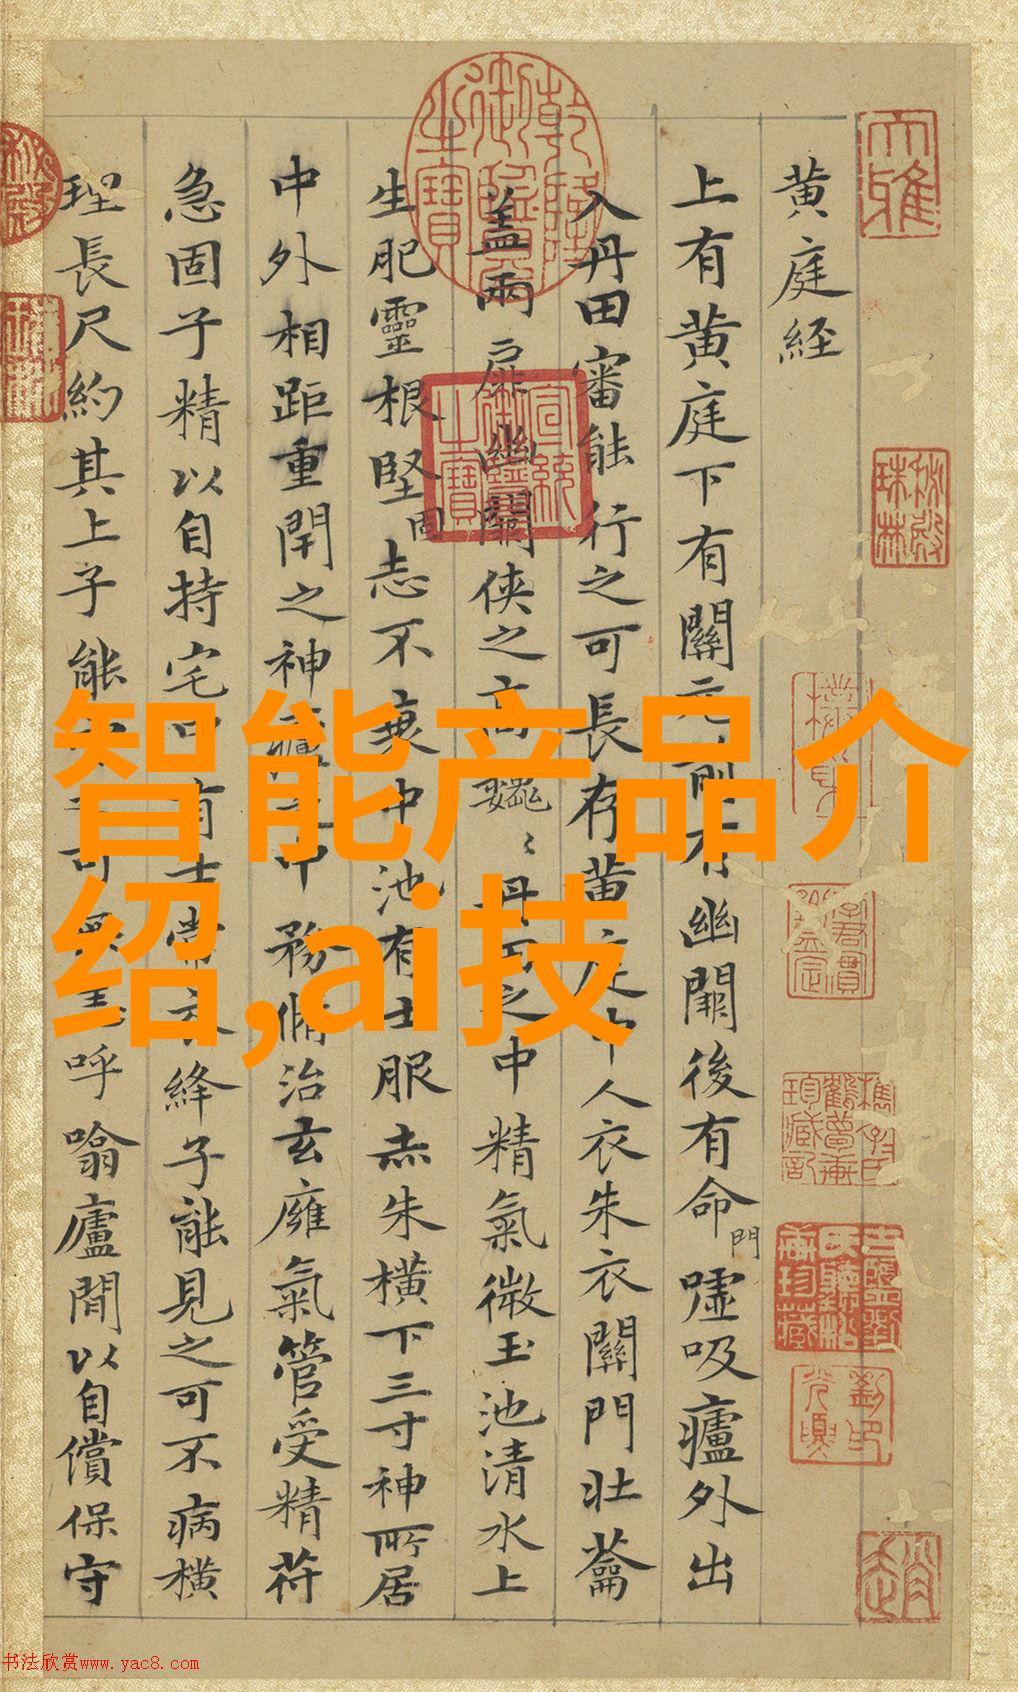 黄庭经
上有黄庭下有關元前有幽闕後有命門嘘吸廬外出
入丹田審能行之可長存黄庭中人衣朱衣關門壮蘥
盖兩扉幽闕侠之高巍〻丹田之中精氣微玉池清水上
生肥靈根堅固志不衰中池有士服赤朱横下三寸神所居
中外相距重閉之神廬之中務脩治玄廱氣管受精符
急固子精以自持宅中有士常衣絳子能見之可不病横
理長尺約其上子能守之可無恙呼噏廬間以自償保守
乾隆御覽之寶
宣統御覽之寶
大雅
秘殿珠林
智能产品介
绍,ai技
书法欣赏www.yac8.com